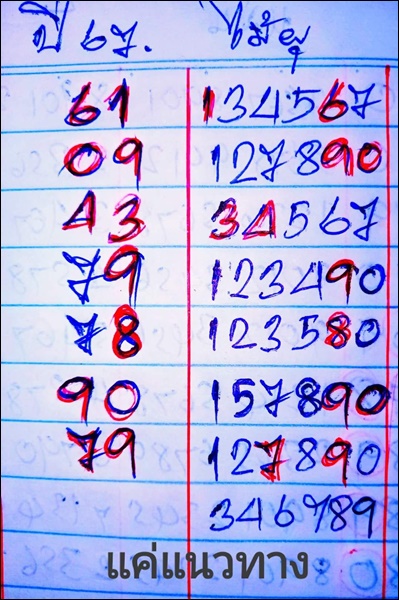 ปี 67. ไม้ๆ
61 134567
09 127890
43 34567
79 123490
78 123580
90 157890
79 127890
346789
แค่แนวทาง